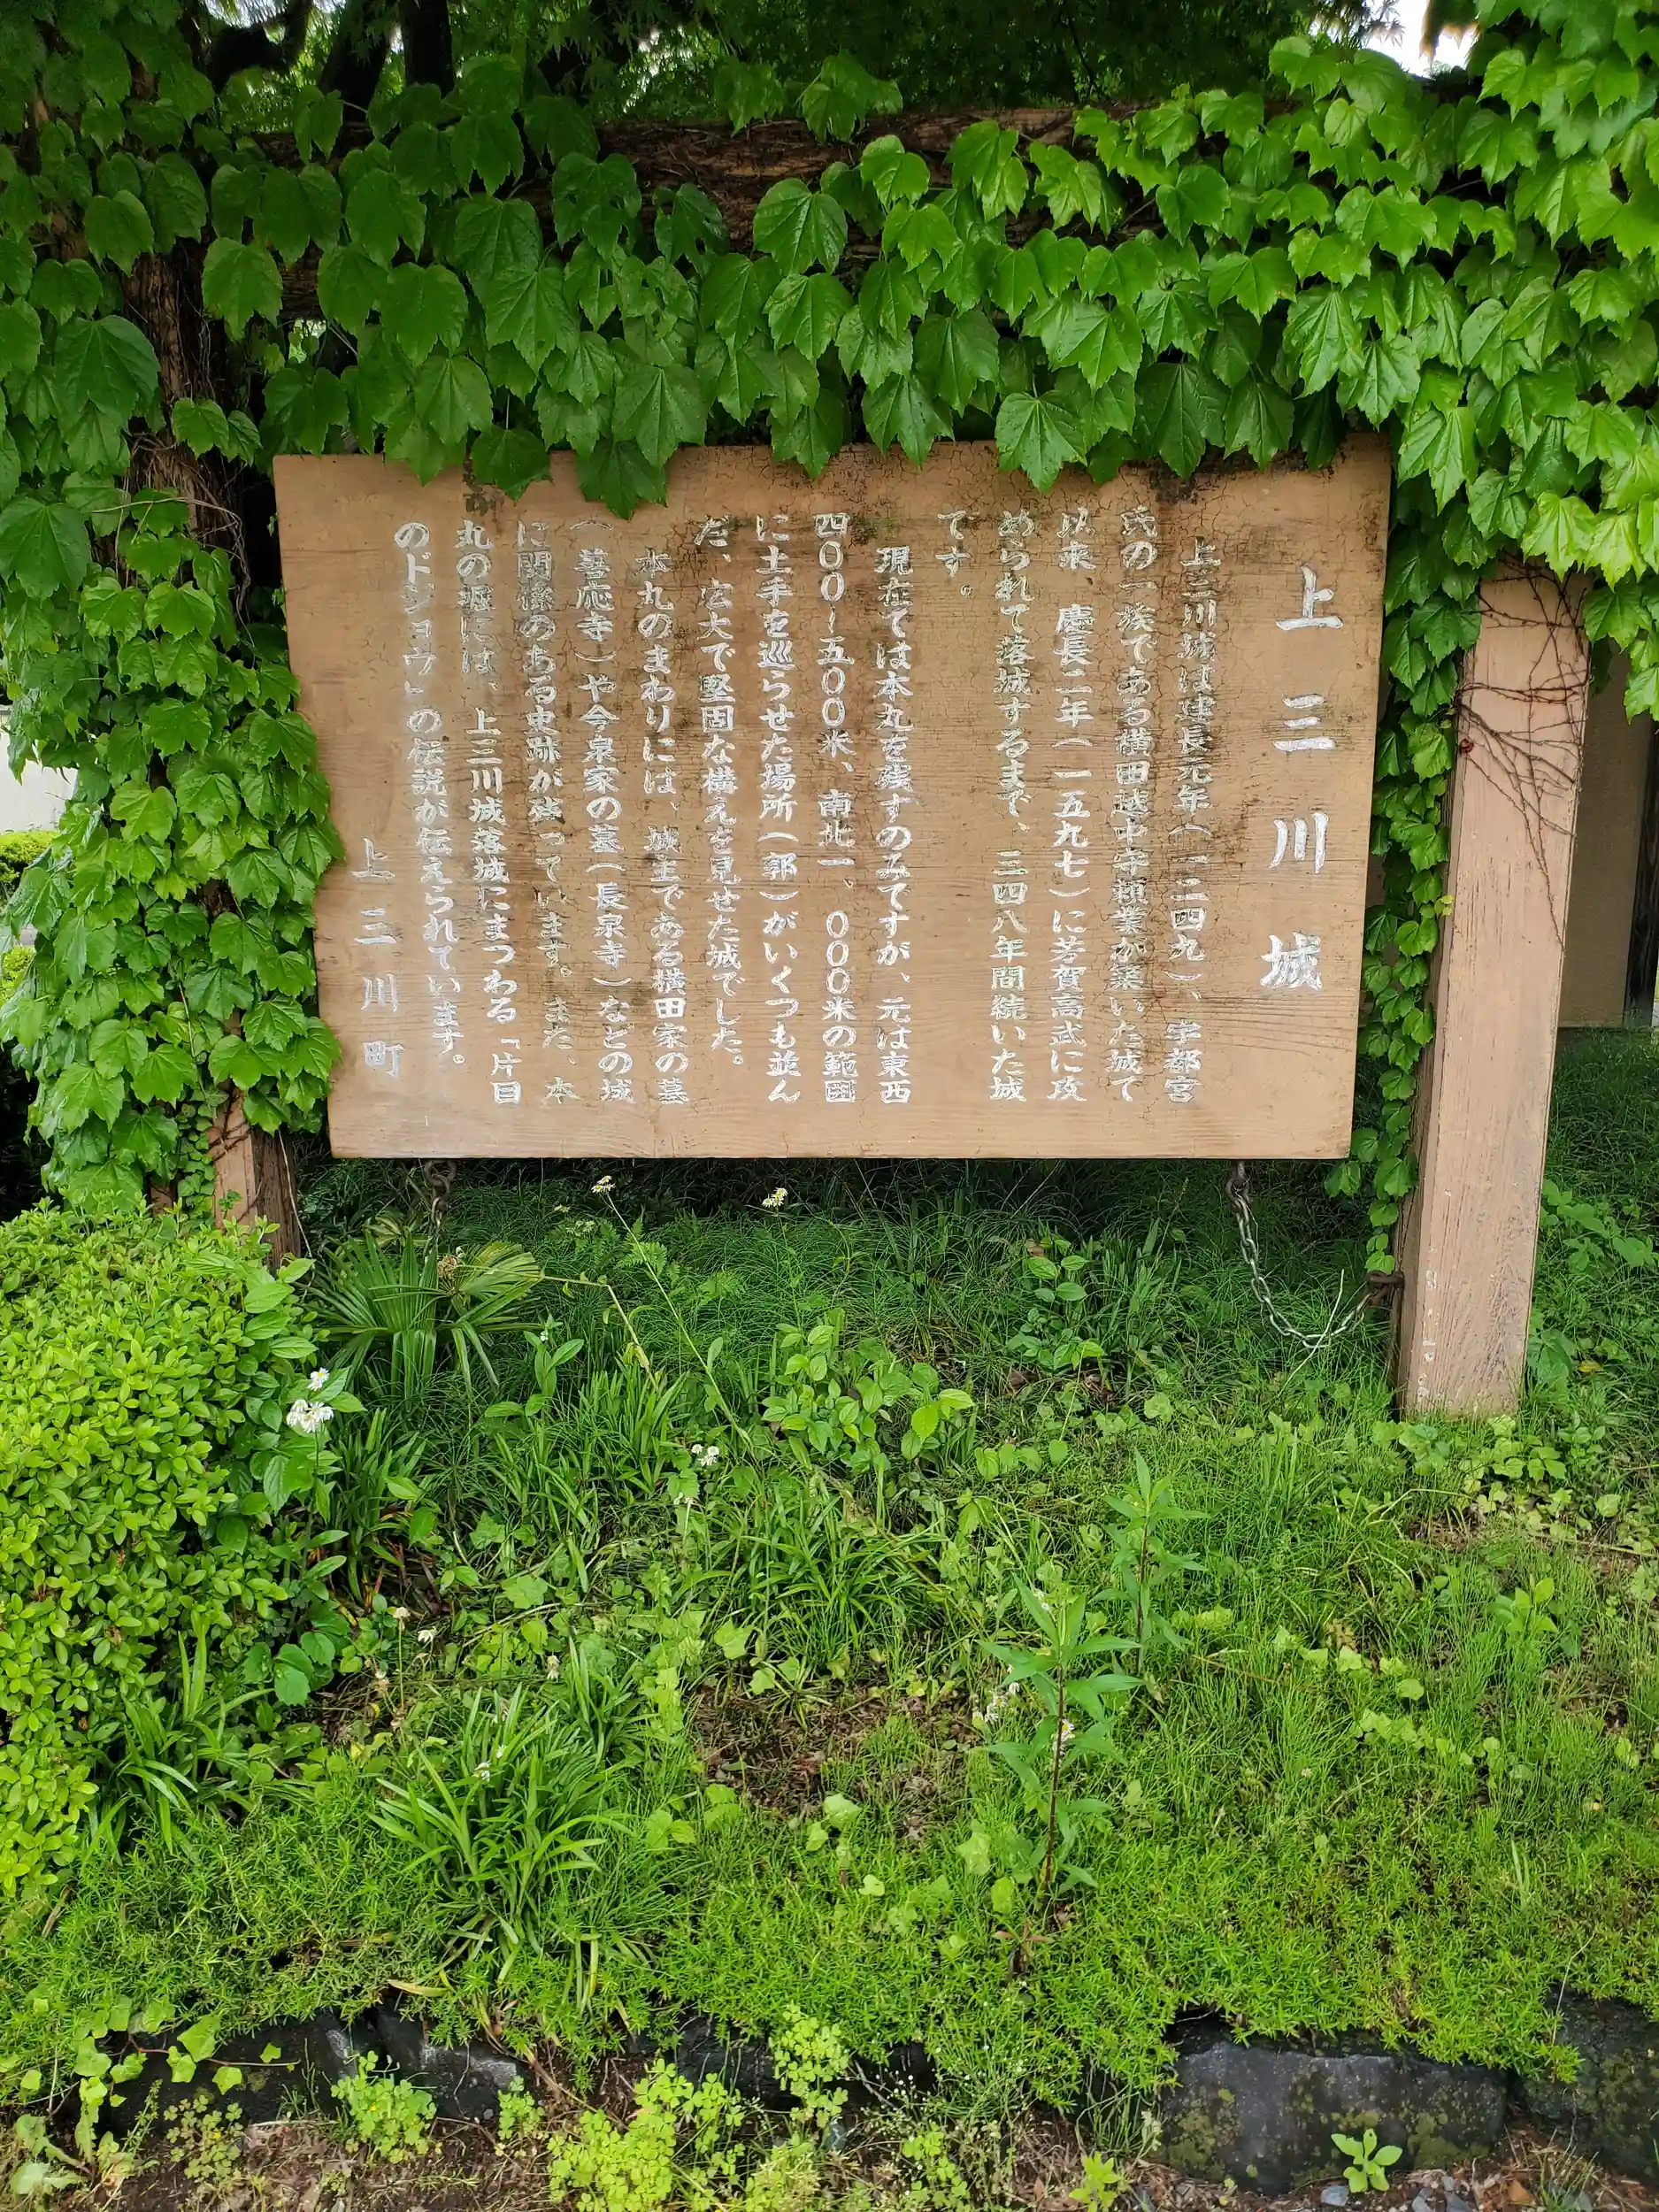 上三川城
上三川城は建長元年(一二四九)、宇都宮
氏の一族である横田越中守頼業が築いた城で
以来 慶長二年(一五九七)に芳賀高武に攻
められて落城するまで、三四八年間続いた城
です。
現在では本丸を残すのみですが、元は東西
四〇〇〜五〇〇米、南北一、〇〇〇米の範囲
に土手を巡らせた場所(郭)がいくつも並ん
だ、広大で堅固な構えを見せた城でした。
本丸のまわりには、城主である横田家の墓
(善応寺)や今泉家の墓(長泉寺)などの城
に関係のある史跡が残っています。また、本
丸の堀には、上三川城落城にまつわる「片目
のドジョウ」の伝説が伝えられています。
上三川町